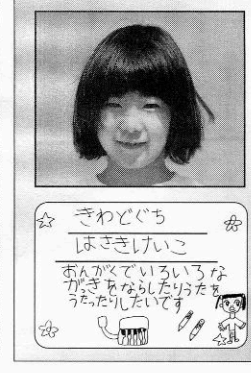 きわどぐち
はさきけいこ
おんがくでいろいろな
がっきをならしたりうたを
うたったりしたいです